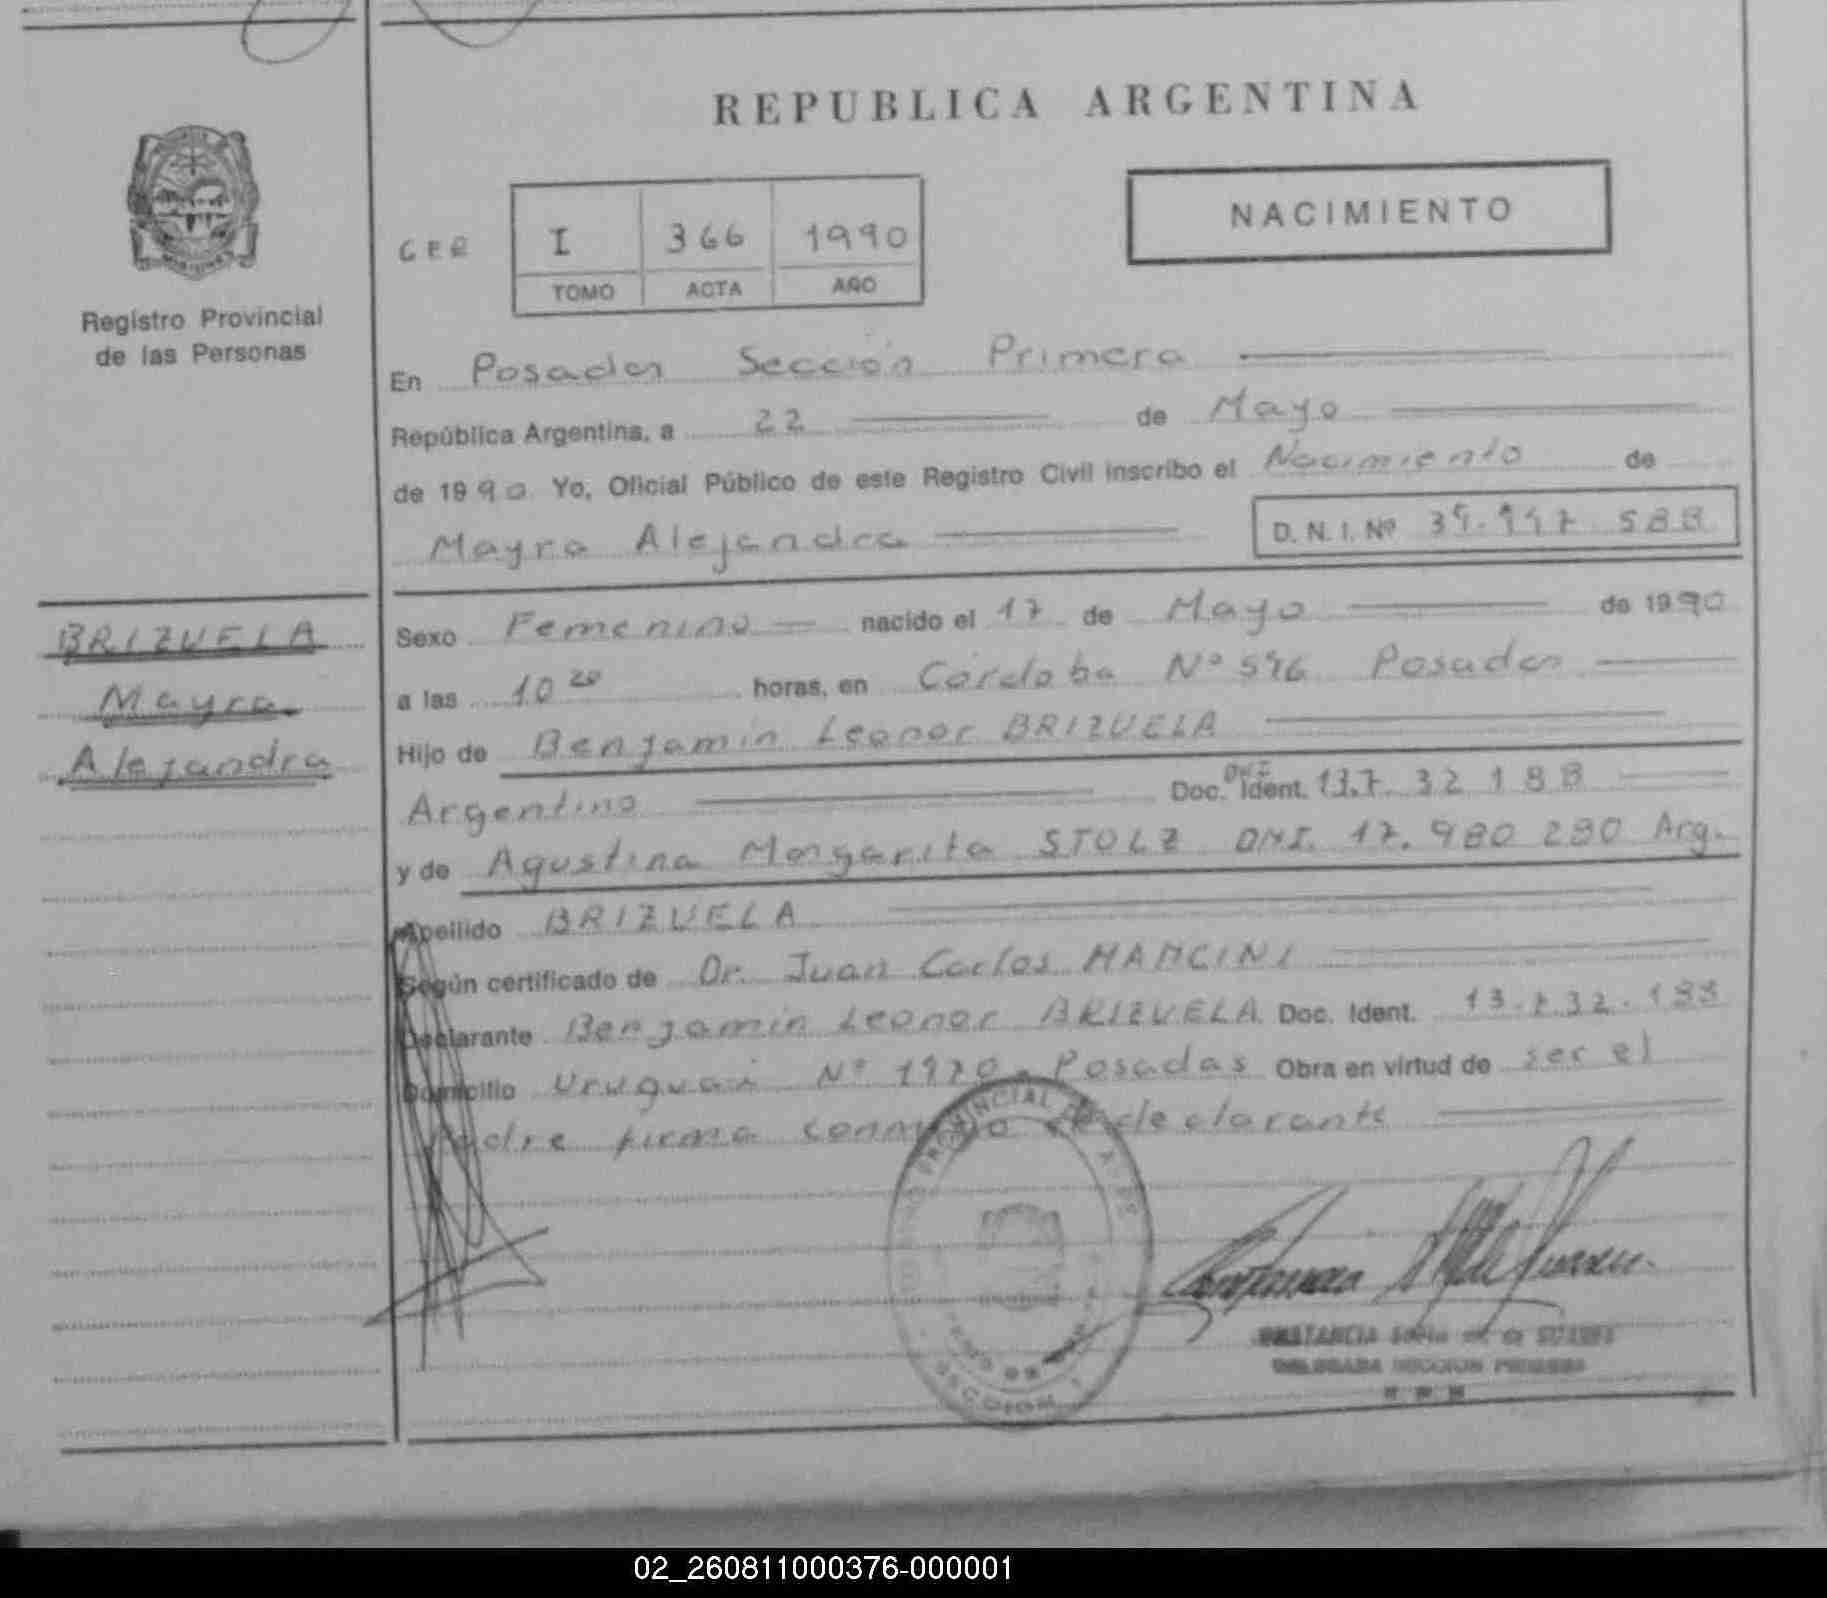 REPUBLICA ARGENTINA
NACIMIENTO
GER
I 366 1990
TOMO ACTA AÑO
Registro Provincial
de las Personas
En Posadas Sección Primera
República Argentina, a 22 de Mayo
de 1990 Yo, Oficial Público de este Registro Civil inscribo el Nacimiento de
Mayra Alejandra D. N. I. Nº
BRIZUELA
Mayra
Alejandra
Sexo Femenino nacido el 17 de Mayo de 1990
a las 10 20 horas, en Córdoba Nº Posadas
Hijo de Benjamin Leonor BRIZUELA
Argentino Doc. DNI Ident. 13.732 188
y de Agustina Margarita STOLZ DNI. 17.980 280 Arg.
Apellido BRIZUELA
Según certificado de Dr. Juan Carlos MANCINI
Declarante Benjamin Leonor BRIZUELA Doc. Ident. 13.732.188
Domicilio Uruguai Nº Posadas Obra en virtud de ser el
Padre firma conmigo declarante
SECCION 1
02_260811000376-000001